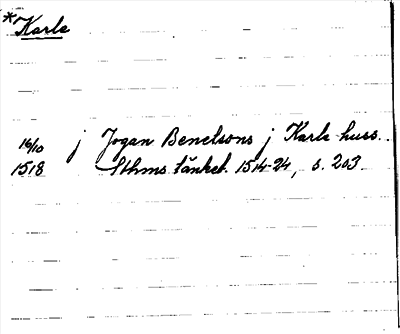 *Karle
16/10 j Jogan Benctsons j Karle huss.
1518 Sthms tänkeb. 1514-24, s. 203.